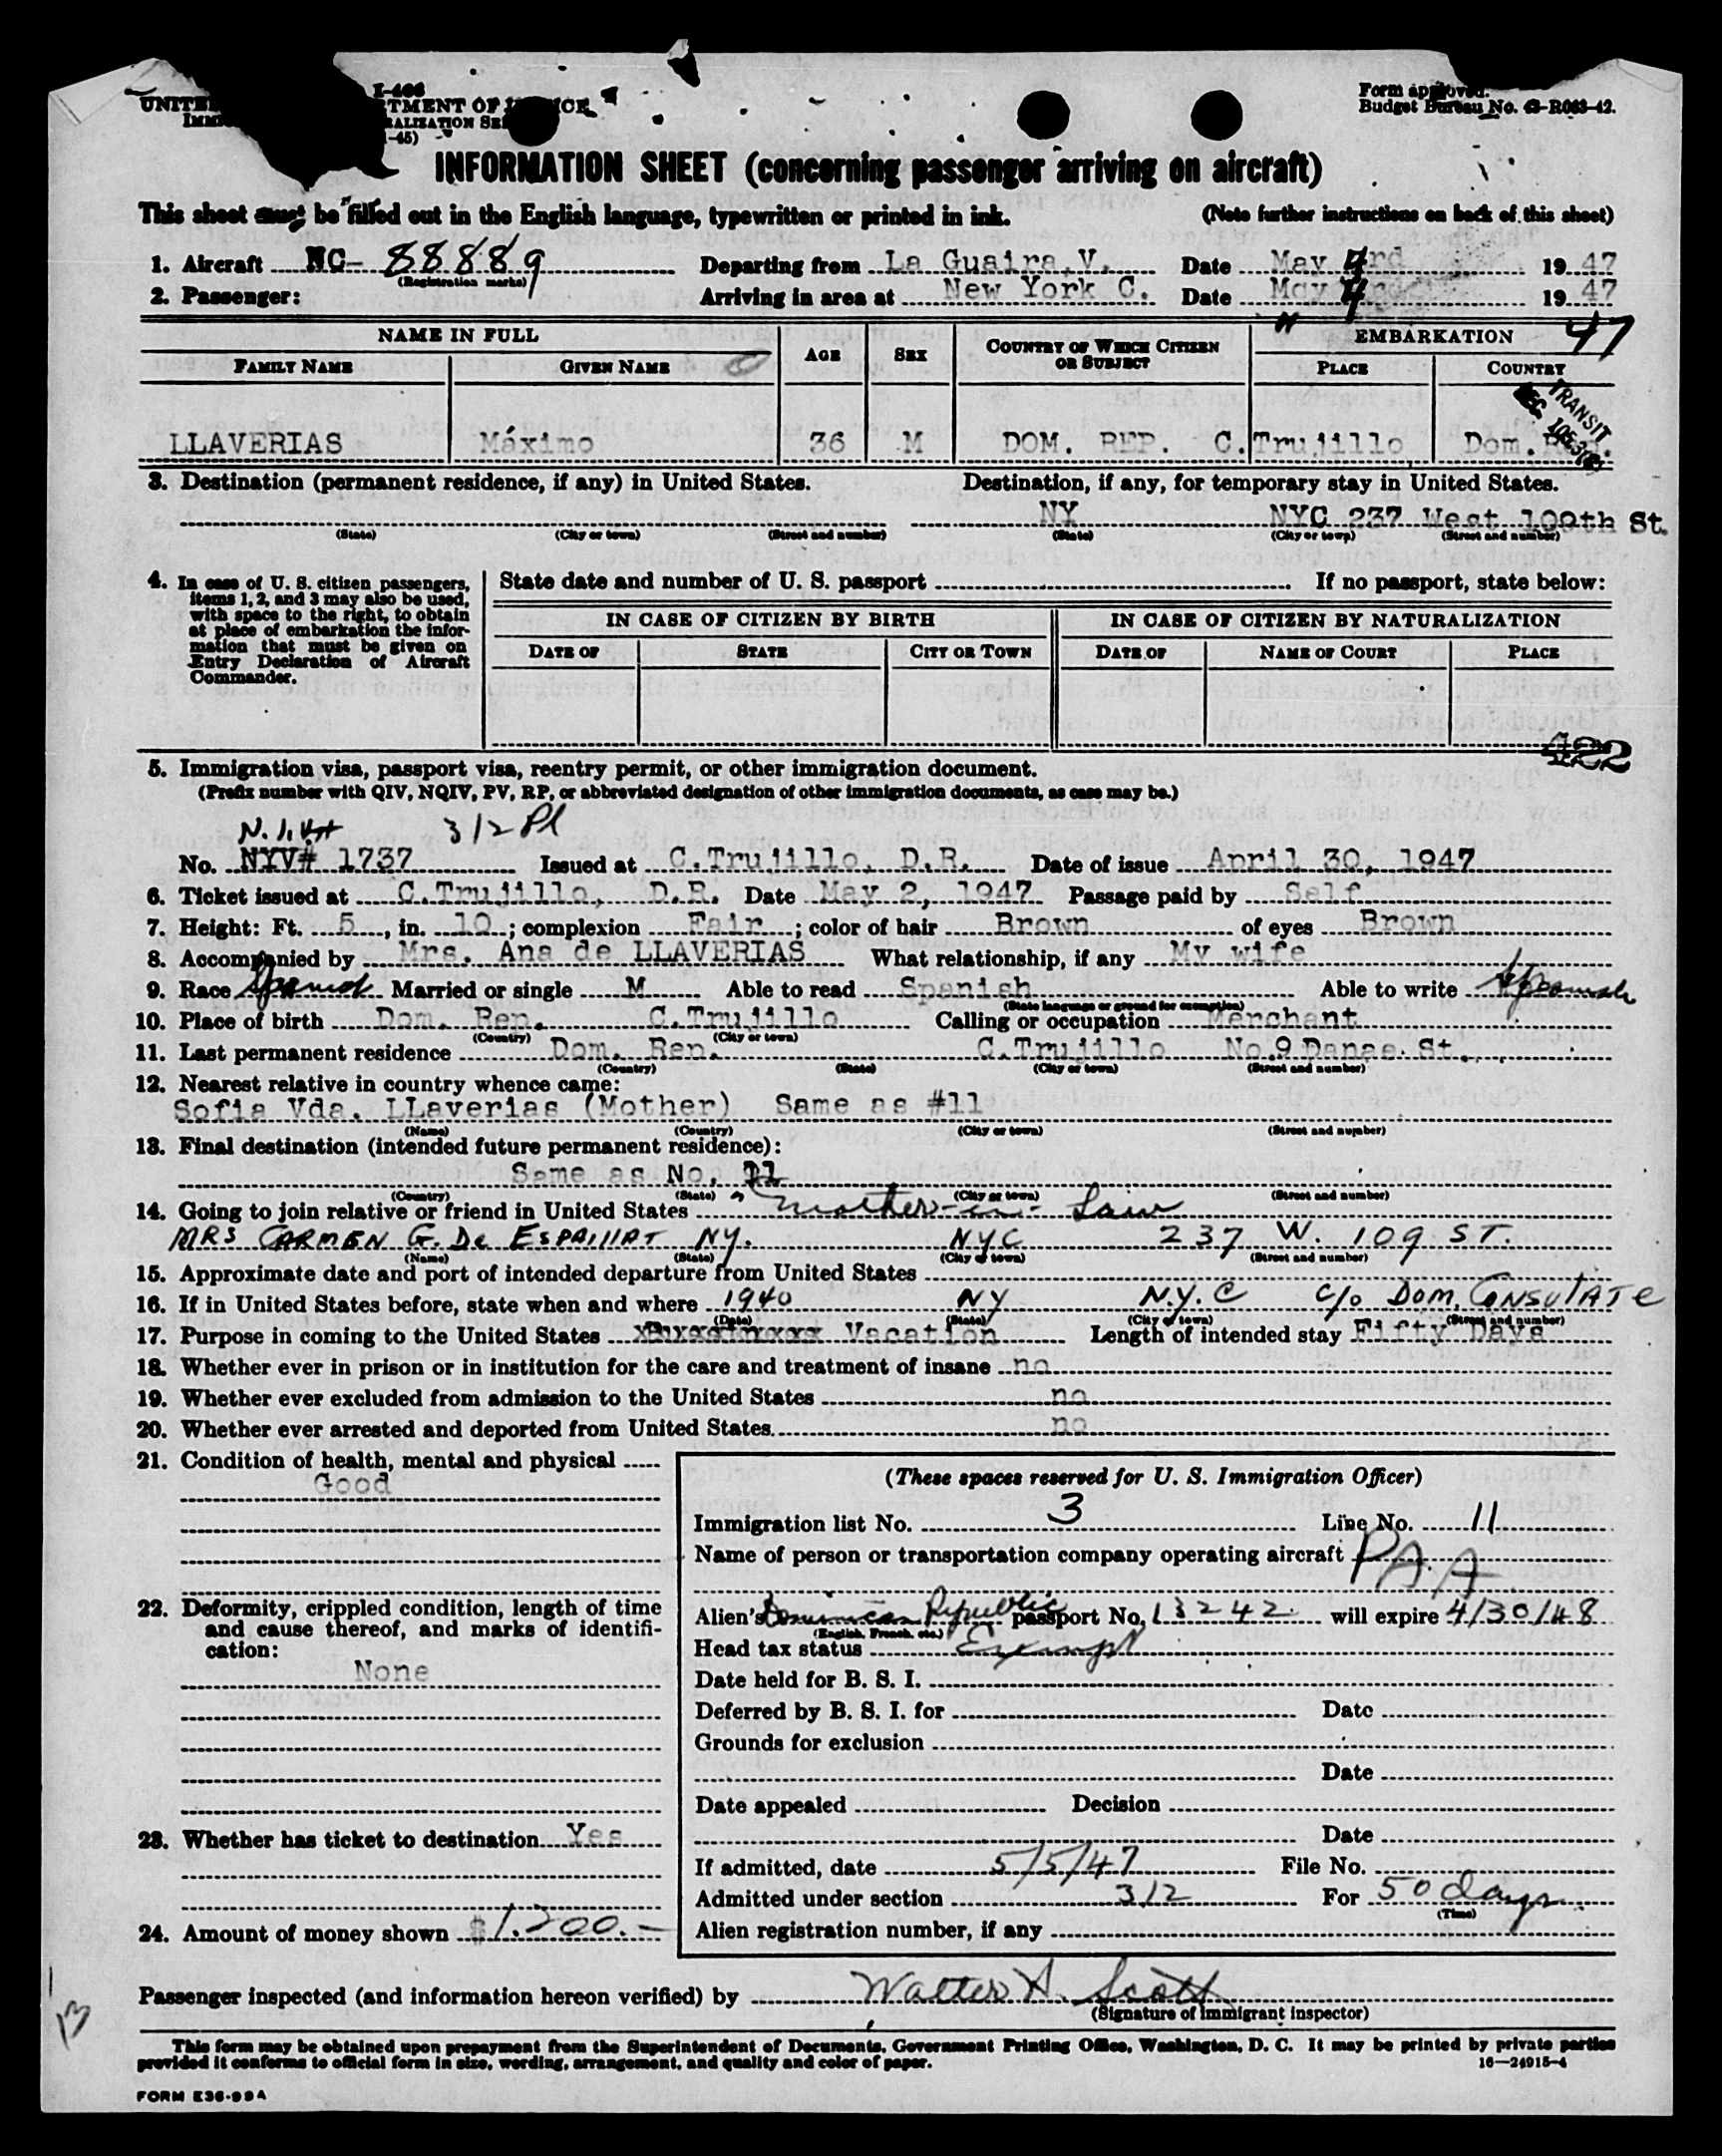 I-466
UNITE TMENT OF J ICE
IMM ALIZATION SE
-45)
Form approved.
Budget Bureau No. 43-R063-42.
INFORMATION SHEET (concerning passenger arriving on aircraft)
This sheet must be filled out in the English language, typewritten or printed in ink. (Note further instructions on back of this sheet)
1. Aircraft NC- 88889 Departing from La Guaira, V. Date May 4 1947
(Registration marks)
2. Passenger: Arriving in area at New York C. Date May 4 1947
47
NAME IN FULL AGE SEX COUNTRY OF WHICH CITIZEN OR SUBJECT EMBARKATION
FAMILY NAME GIVEN NAME PLACE COUNTRY
TRANSIT
LLAVERIAS Máximo 36 M DOM. REP. C.Trujillo Dom. Rep.
3. Destination (permanent residence, if any) in United States. Destination, if any, for temporary stay in United States.
NY NYC 237 West 109th St.
(State) (City or town) (Street and number) (State) (City or town) (Street and number)
4. In case of U. S. citizen passengers, items 1, 2, and 3 may also be used, with space to the right, to obtain at place of embarkation the information that must be given on Entry Declaration of Aircraft Commander.
State date and number of U. S. passport If no passport, state below:
IN CASE OF CITIZEN BY BIRTH IN CASE OF CITIZEN BY NATURALIZATION
DATE OF STATE CITY OR TOWN DATE OF NAME OF COURT PLACE
422
5. Immigration visa, passport visa, reentry permit, or other immigration document.
(Prefix number with QIV, NQIV, PV, RP, or abbreviated designation of other immigration documents, as case may be.)
312 Pl
No. NYV# 1737 Issued at C.Trujillo, D.R. Date of issue April 30, 1947
6. Ticket issued at C.Trujillo, D.R. Date May 2, 1947 Passage paid by Self
7. Height: Ft. 5, in. 10; complexion Fair; color of hair Brown of eyes Brown
8. Accompanied by Mrs. Ana de LLAVERIAS What relationship, if any My wife
9. Race Spanish Married or single M Able to read Spanish Able to write Spanish
(State language or ground for exemption)
10. Place of birth Dom. Rep. C.Trujillo Calling or occupation Merchant
(Country) (City or town)
11. Last permanent residence Dom. Rep. C.Trujillo No.9 Danae St.
(Country) (State) (City or town) (Street and number)
12. Nearest relative in country whence came:
Sofia Vda. LLaverias (Mother) Same as #11
(Name) (Country) (City or town) (Street and number)
13. Final destination (intended future permanent residence):
Same as No. 11
(Country) (State) (City or town) (Street and number)
14. Going to join relative or friend in United States mother-in-Law
MRS CARMEN G. De ESPAILLAT NY. NYC 237 W. 109 ST.
(Name) (State) (City or town) (Street and number)
15. Approximate date and port of intended departure from United States
16. If in United States before, state when and where 1940 NY N.Y.C c/o DOM. CONSULATe
(Date) (State) (City or town) (Street and number)
17. Purpose in coming to the United States Vacation Length of intended stay Fifty Days
18. Whether ever in prison or in institution for the care and treatment of insane no
19. Whether ever excluded from admission to the United States no
20. Whether ever arrested and deported from United States. no
21. Condition of health, mental and physical
Good
22. Deformity, crippled condition, length of time and cause thereof, and marks of identification:
None
23. Whether has ticket to destination Yes
24. Amount of money shown $1.200.-
(These spaces reserved for U. S. Immigration Officer)
Immigration list No. 3 Line No. 11
Name of person or transportation company operating aircraft PAA
Alien's Dominican Republic passport No. 13242 will expire 4/30/48
(English, French, etc.)
Head tax status Exempt
Date held for B. S. I.
Deferred by B. S. I. for Date
Grounds for exclusion
Date
Date appealed Decision
Date
If admitted, date 5/5/47 File No.
Admitted under section 3/2 For 50 days
(Time)
Alien registration number, if any
Passenger inspected (and information hereon verified) by Walter A. Scott
(Signature of immigrant inspector)
13
This form may be obtained upon prepayment from the Superintendent of Documents, Government Printing Office, Washington, D. C. It may be printed by private parties
provided it conforms to official form in size, wording, arrangement, and quality and color of paper. 16—24915-4
FORM E36-99A